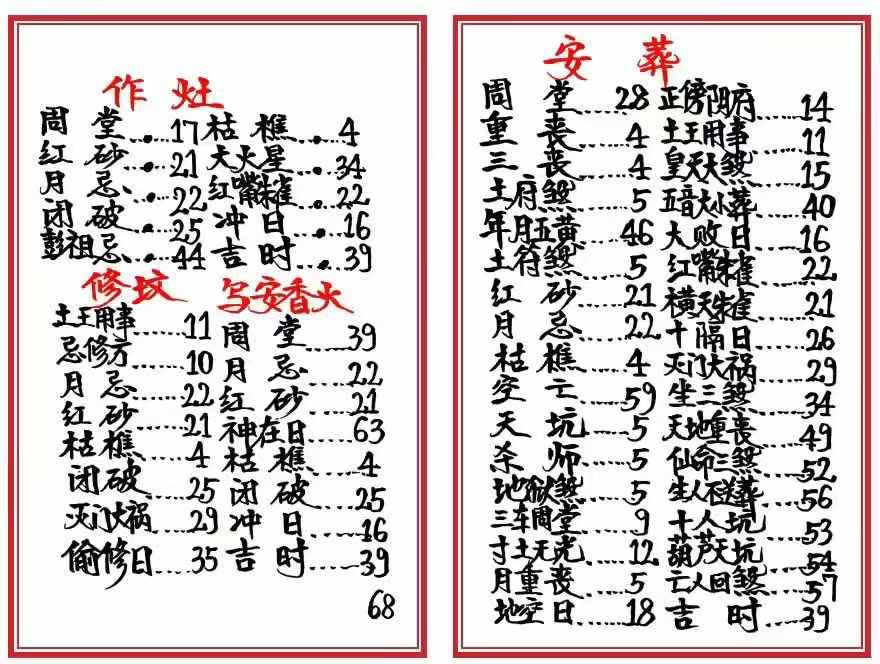 作灶
周堂……17 枯樵……4
红砂……21 大火星……34
月忌……22 红嘴朱雀……22
闭破……25 冲日……16
彭祖忌……44 吉时……39
修坟
土王用事……11
忌修方……10
月忌……22
红砂……21
枯樵……4
闭破……25
灭门大祸……29
偷修日……35
写安香火
周堂……39
月忌……22
红砂……21
神在日……63
枯樵……4
闭破……25
冲日……16
吉时……39
68
安葬
周堂……28 正傍阴府……14
重丧……4 土王用事……11
三丧……4 皇天大煞……15
土府煞……5 五音大小葬……40
年月五黄……46 大败日……16
土符煞……5 红嘴朱雀……22
红砂……21 横天朱雀……21
月忌……22 十隔日……26
枯樵……4 灭门大祸……29
空亡……59 坐三煞……34
天坑……5 天地重丧……49
杀师……5 仙命三煞……52
地狱煞……5 生人不送葬……56
三车周堂……9 十人坑……53
寸土无光……12 葫芦天坑……54
月重丧……5 亡人回煞……57
地空日……18 吉时……39